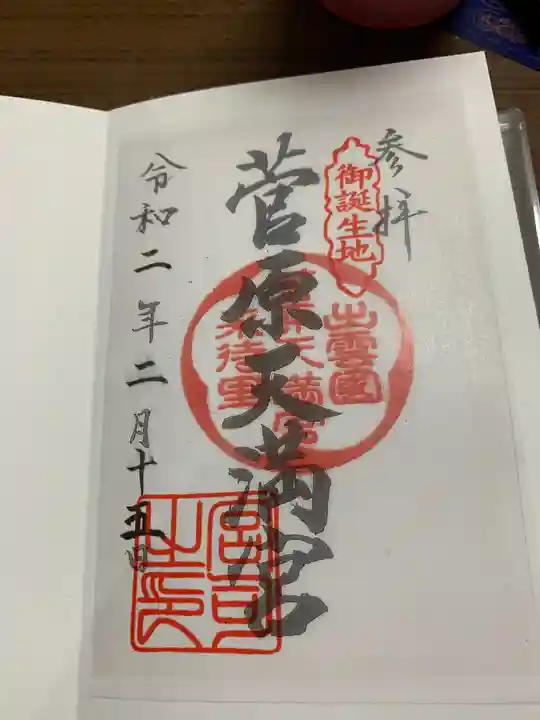 参拝
御誕生地
出雲國
菅原天満宮
来待里
菅原天満宮
宮司之印
令和二年二月十五日